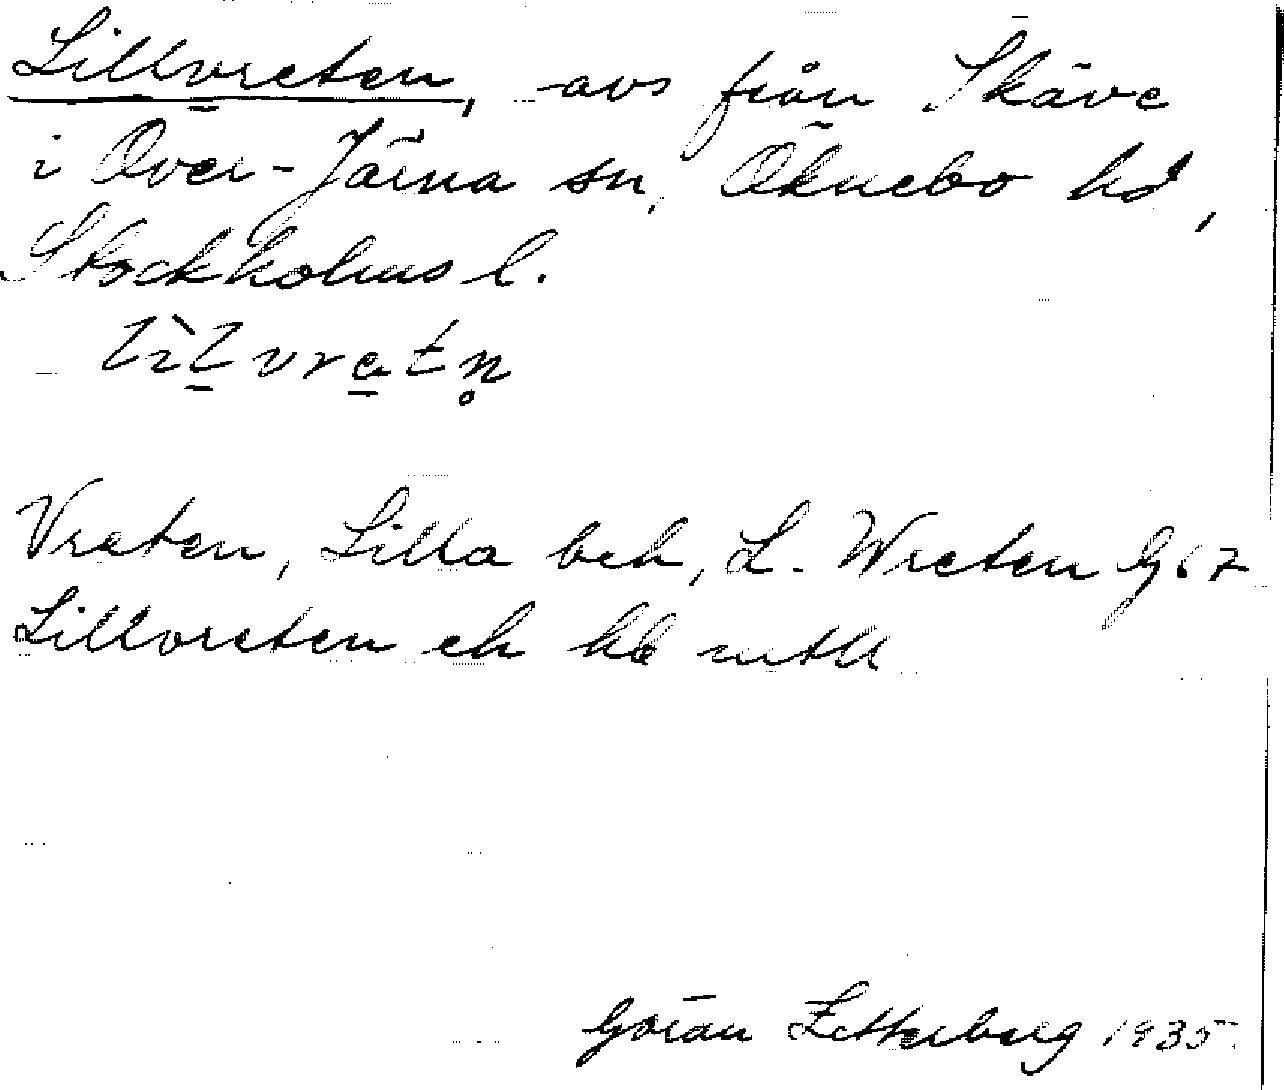 Lillvreten, avs från Skäve
i Över-Järna sn, Öknebo hd,
Stockholms l.
lìl vretn̥
Vreten, Lilla beh, L. Wreten Gg 67
Lillvreten eh hb mtll
Göran Zetterberg 1935.